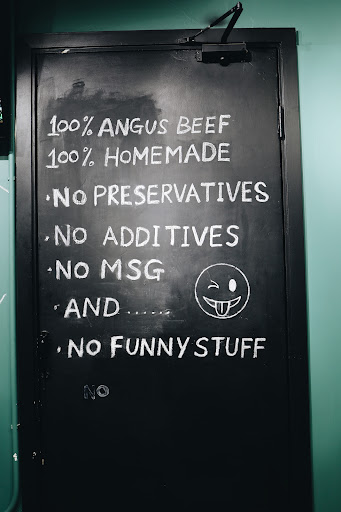 100% ANGUS BEEF
100% HOMEMADE
·NO PRESERVATIVES
·NO ADDITIVES
·NO MSG
·AND ......
·NO FUNNY STUFF
NO